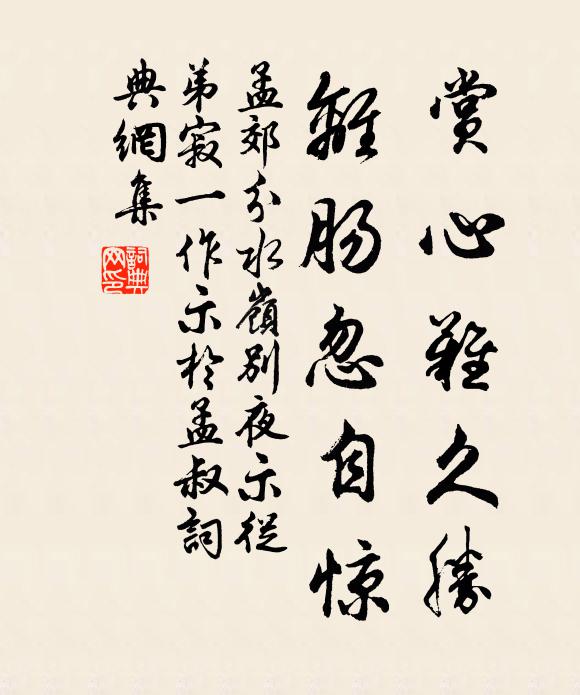 賞心難久勝
離腸忽自惊
孟郊分水嶺别夜示從
弟寂一作示於孟叔詞
典網集
詞典網印